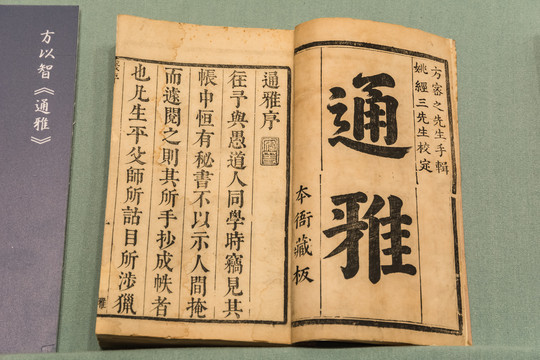 方以智《通雅》
方密之先生手輯
姚經三先生校定
通雅
本衙藏板
通雅序
往予與愚道人同學時竊見其
帳中恒有秘書不以示人間掩
而遽閱之則其所手抄成帙者
也凡生平父師所詁目所涉獵
雅